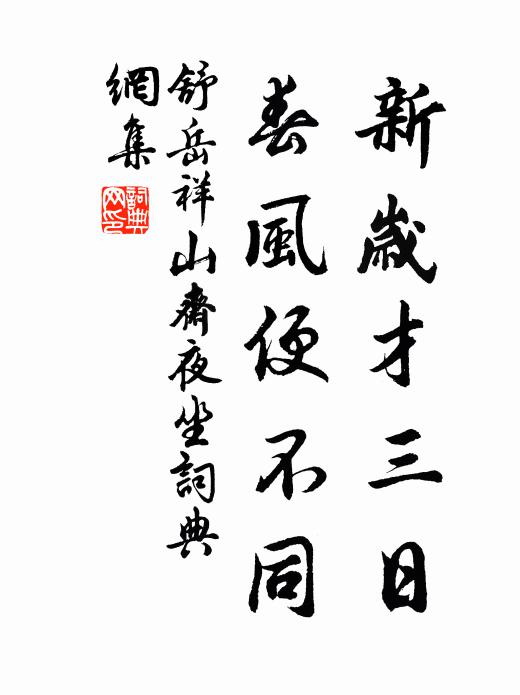 新歲才三日
春風便不同
舒岳祥山齋夜坐詞典
網集
詞典
网印